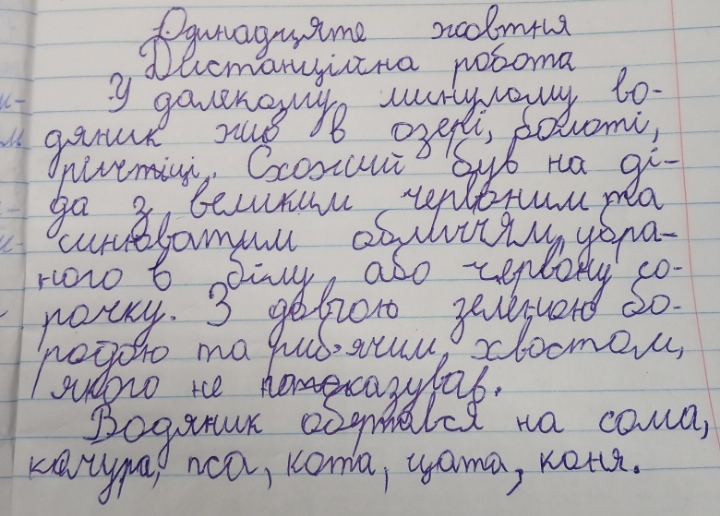 Одинадцяте жовтня
Дистанційна робота
У далекому минулому во-
дяник жив в озері, болоті,
річтіці. Схожий був на ді-
да з великим червоним та
синюватим обличчям, убра-
ного в білу або червону со-
рочку. З довгою зеленою бо-
родою та риб'ячим хвостом,
якого не показував.
Водяник обертався на сома,
качура, пса, кота, цапа, коня.